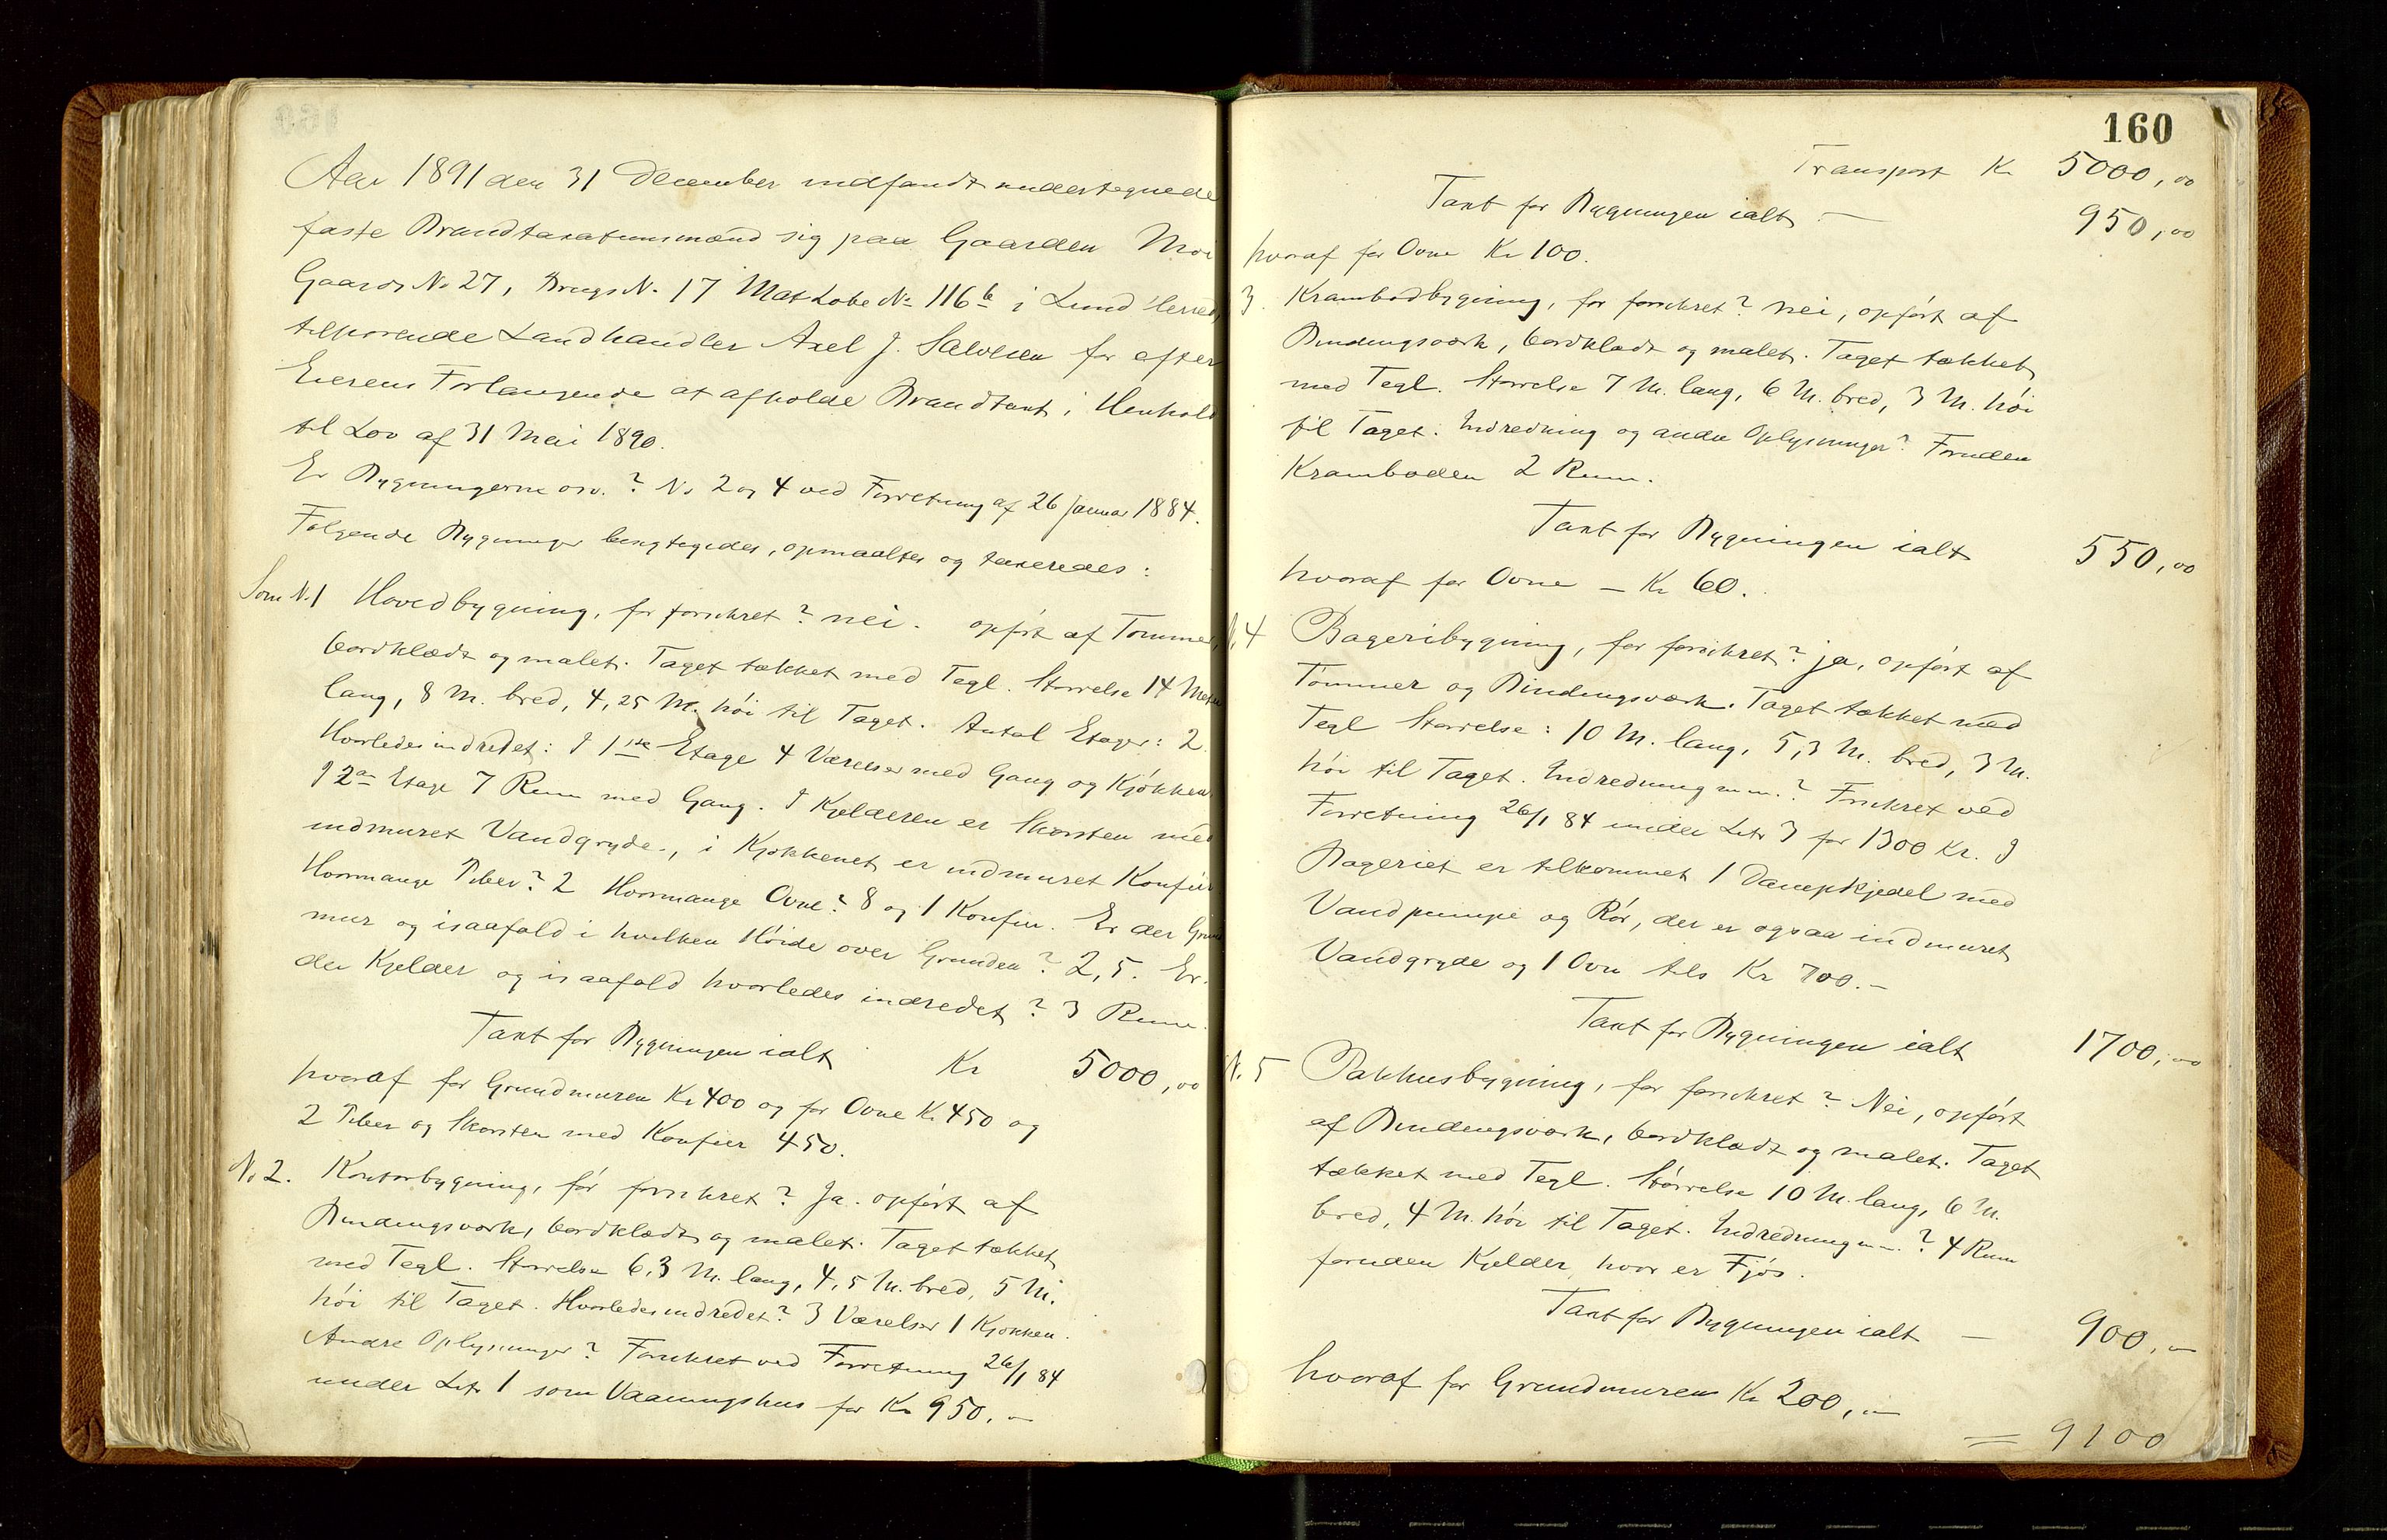 Aar 1891 den 31 December indfandt undertegnede
faste Brandtaxationsmænd sig paa Gaarden Moi
Gaards No 27, Brugs N. 17 Mat Løbe No 116b i Lund Herred,
tilhørende Landhandler Axel J. Salvesen for efter
Eierens Forlangende at afholde Brandtaxt i Henhold
til Lov af 31 Mai 1890.
Er Bygningerne osv.? No 2 og 4 ved Forretning af 26 Januar 1884.
Følgende Bygninger besigtigedes, opmaaltes og taxeredes:
Som N. 1 Hovedbygning, før forsikret? nei. opført af Tømmer,
bordklædt og malet. Taget tækket med Tegl. Størrelse 14 Meter
lang, 8 M. bred, 4,25 M. høi til Taget. Antal Etager: 2.
Hvorledes indredet: I 1ste Etage 4 Værelser med Gang og Kjøkken.
I 2den Etage 7 Rum med Gang. I Kjelderen er Skorsten med
indmuret Vandgryde, i Kjøkkenet er indmuret Komfur
Hvormange Piber? 2 Hvormange Ovne? 8 og 1 Komfur. Er der Grund
mur og isaafald i hvilken Høide over Grunden? 2,5. Er
der Kjelder og isaafald hvorledes indredet? 3 Rum.
Taxt for Bygningen ialt Kr 5000,00
hvoraf for Grundmuren Kr 400 og for Ovne Kr 450 og
2 Piber og Skorsten med Komfur 450.
No 2. Kontorbygning, før forsikret? Ja. opført af
Bindingsværk, bordklædt og malet. Taget tækket
med Tegl. Størrelse 6,3 M. lang, 4,5 M. bred, 5 M.
høi til Taget. Hvorledes indredet? 3 Værelser 1 Kjøkken.
Andre Oplysninger? Forsikret ved Forretning 26/1 84
under Litr 1 som Vaaningshus for Kr 950.–
160
Transport Kr 5000,00
Taxt for Bygningen ialt – 950,00
hvoraf for Ovne Kr 100.
3. Krambodbygning, før forsikret? nei, opført af
Bindingsværk, bordklædt og malet. Taget tækket
med Tegl. Størrelse 7 M. lang, 6 M. bred, 3 M. høi
til Taget. Indredning og andre Oplysninger? Foruden
Kramboden 2 Rum.
Taxt for Bygningen ialt 550,00
hvoraf for Ovne – Kr 60.
N. 4 Bageribygning, før forsikret? ja, opført af
Tømmer og Bindingsværk. Taget tækket med
Tegl Størrelse: 10 M. lang, 5,3 M. bred, 3 M.
høi til Taget. Indredning m.m.? Forsikret ved
Forretning 26/1 84 under Litr 3 for 1300 Kr. I
Bageriet er tilkommet 1 Dampkjedel med
Vandpumpe og Rør, der er ogsaa indmuret
Vandgryde og 1 Ovn tils Kr 700.–
Taxt for Bygningen ialt 1700,00
N. 5 Pakhusbygning, før forsikret? Nei, opført
af Bindingsværk, bordklædt og malet. Taget
tækket med Tegl. Størrelse 10 M. lang, 6 M.
bred, 4 M. høi til Taget. Indredning m.m.? 4 Rum
foruden Kjelder, hvor er Fjøs.
Taxt for Bygningen ialt – 900,–
hvoraf for Grundmuren Kr 200,–
= 9100